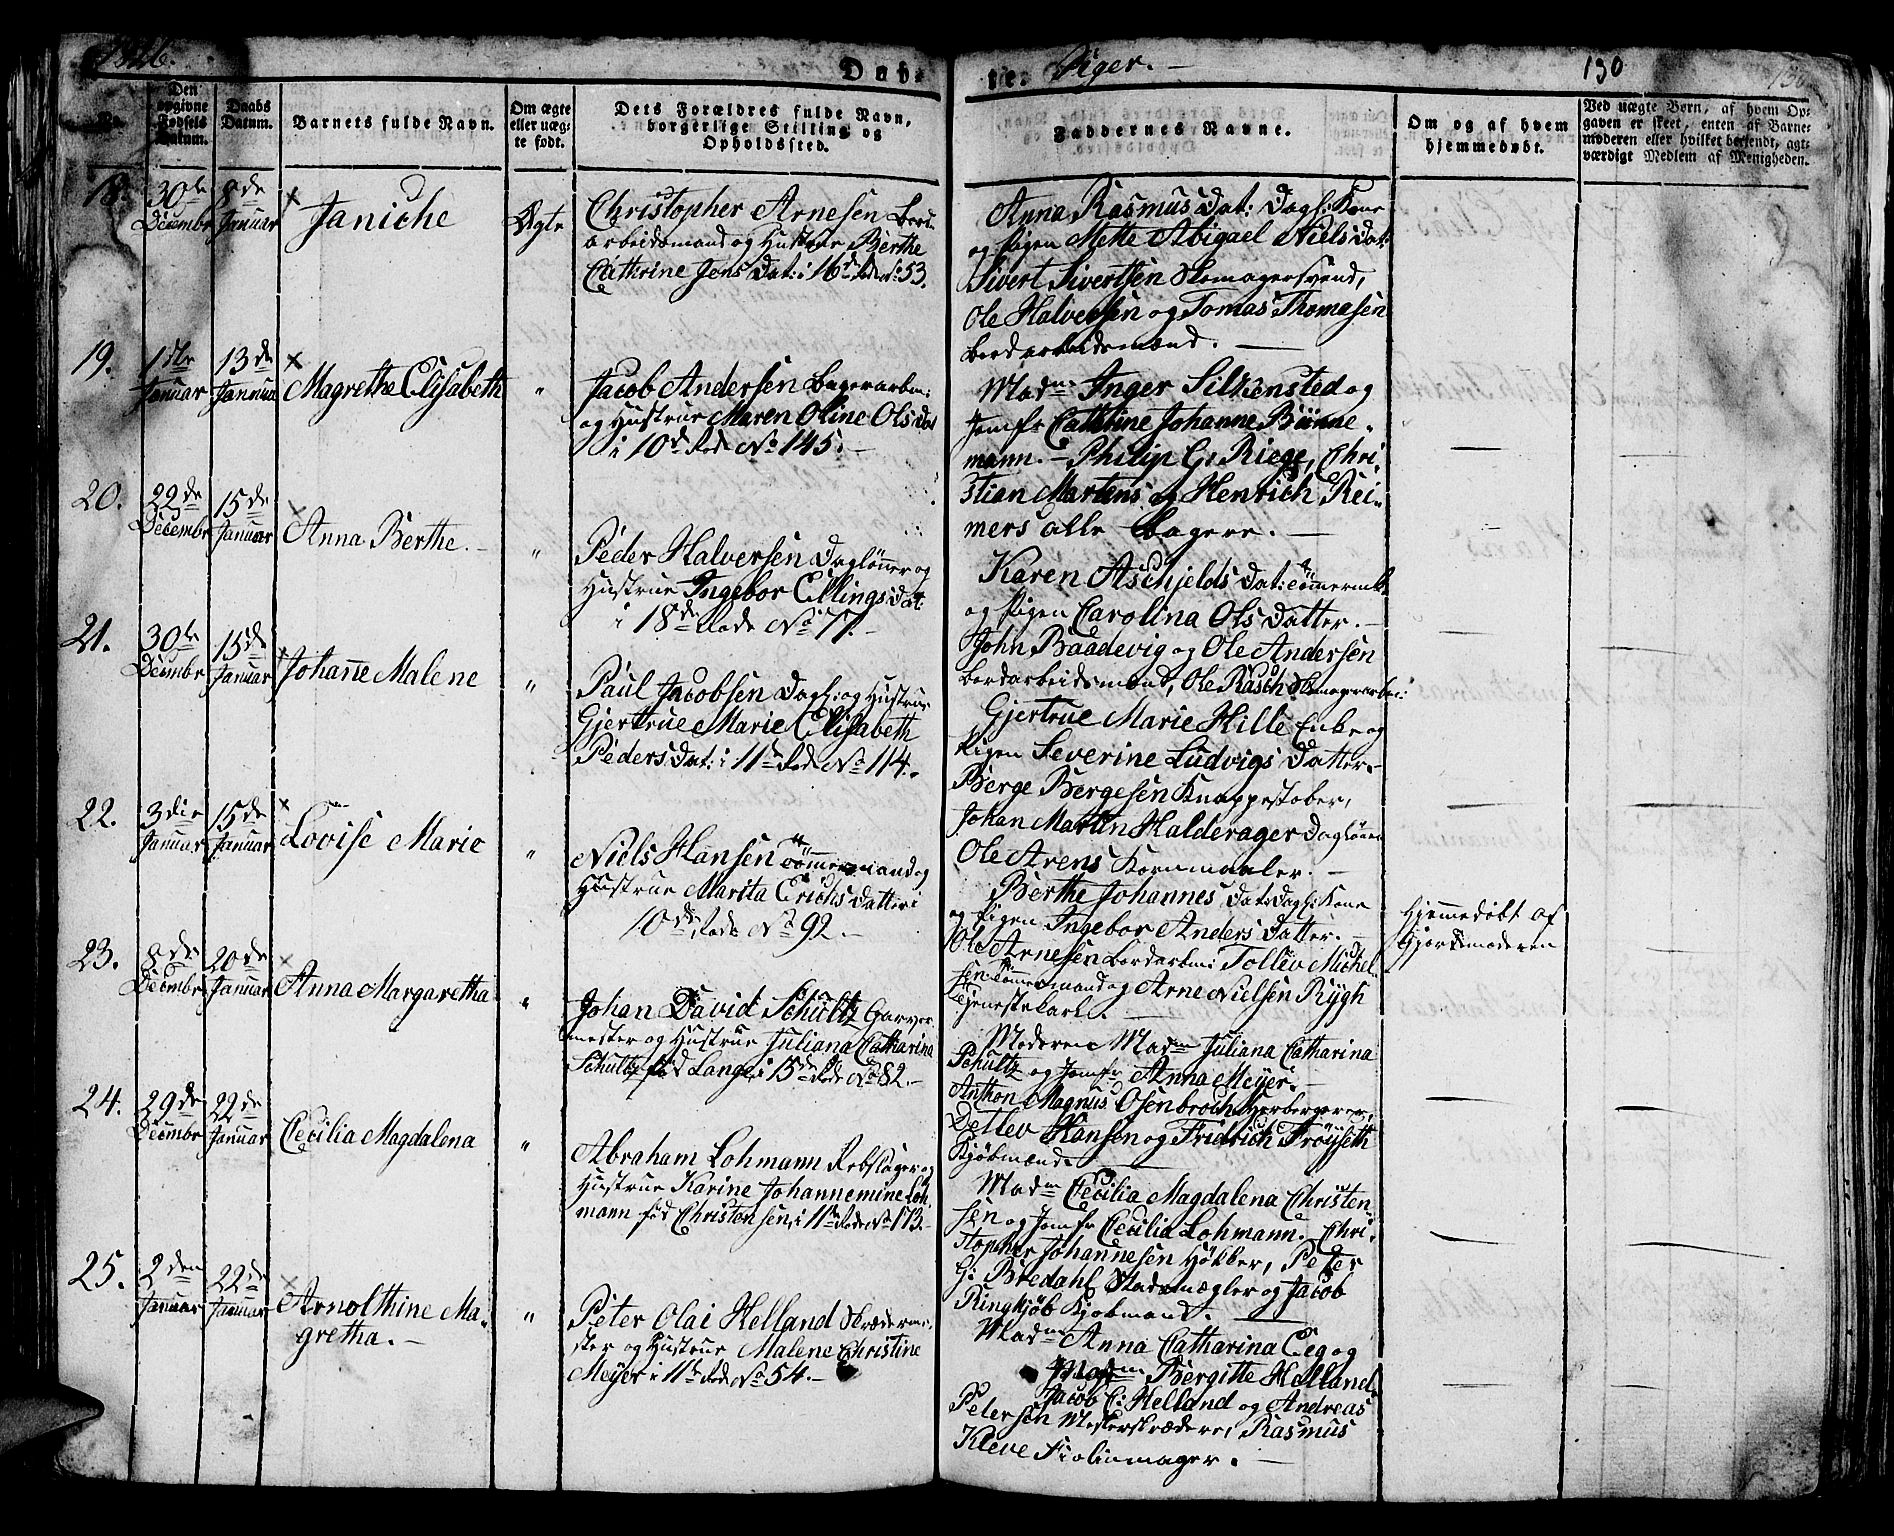 1826.
Døb-
te. Piger.
130
Den opgivne Fødsels Datum.
Daabs Datum.
Barnets fulde Navn.
Om ægte eller uægte født.
Dets Forældres fulde Navn, borgerlige Stilling og Opholdssted.
Faddernes Navne.
Om og af hvem hjemmedøbt.
Ved uægte Børn, af hvem Opgaven er skeet, enten af Barnemoderen eller hvilket bekjendt, agtværdigt Medlem af Menigheden.
18.
30te Decembr
8de Januar
Janiche
Ægte
Christopher Arnesen Bord-
arbeidsmand og Hustrue Berthe
Cathrine Jens Dat: i 16de Rode No 53.
Anna Rasmus Dat: Dagl: Kone
og Pigen Mette Abigael Niels Dat:
Sivert Sivertsen Skomagersvend,
Ole Halversen og Tomas Thomasen
Bordarbeidsmænd. —
19.
1ste Januar
13de Januar
Magrethe Elisabeth
"
Jacob Andersen Bagerarbm:
og Hustrue Maren Oline Ols Dat
i 10de Rode No 145. —
Madme Inger Silkensted og
Jomfr Cathrine Johanne Bünne-
mann. — Philip G. Riege, Chri-
stian Martens og Henrich Rei-
mers alle Bagere. —
20.
22de Decembr
15de Januar
Anna Berthe. —
"
Peder Halversen Dagløner og
Hustrue Ingebor Ellings Dat:
i 18de Rode No 77. —
Karen Aschjelds Dat: Tømermk:
og Pigen Carolina Ols Datter. —
John Baadevig og Ole Andersen
Bordarbeidsmænd, Ole Rasch Skomagerarber:
21.
30te Decembr
15de Januar
Johanne Malene
"
Paul Jacobsen Dagl: og Hustrue
Gjertrue Marie Elisabeth
Peders Dat: i 11te Rode No 114.
Gjertrue Marie Hille Enke og
Pigen Severine Ludvigs Datter. —
Berge Bergesen Knappestøber,
Johan Martin Halderager Dagløner
Ole Arens Kornmaaler. —
22.
3die Januar
15de Januar
Lovise Marie
"
Niels Hansen Tømmermand og
Hustrue Marita Erichs Datter i
10de Rode No 92. —
Berthe Johannes Dat: Dagl: Kone
og Pigen Ingebor Anders Datter. —
Ole Arnesen Bordarbm: Tollev Michel-
sen Tømmermand og Arne Nielsen Rygh
Tjenestekarl. —
Hjemmedøbt af
Gjordemoderen
23.
8de Decembr
20de Januar
Anna Margaretha
"
Johan David Schultz Garver-
mester og Hustrue Juliana Catharina
Schultz fød Lange, i 15de Rode No 82. —
Moderen Madme Juliana Catharina
Schultz og Jomfr Anna Meyer. —
Anthon Magnus Osenbroch Herbergerer,
Detlev Hansen og Fridrich Frøyseth
Kjøbmænd.
24.
29de Decembr
22de Januar
Cecilia Magdalena
"
Abraham Lohmann Rebslager og
Hustrue Karine Johannemine Loh-
mann fød Christensen, i 11te Rode No 113. —
Madme Cecilia Magdalena Christen-
sen og Jomfr Cecilia Lohmann. Chri-
stopher Johannesen Høkker, Peter
G: Bredahl Stadsmægler og Jacob
Ringkjøb Kjøbmand. —
25.
2den Januar
22de Januar
Arnolthine Ma-
gretha. —
"
Peter Olai Helland Skræderme-
ster og Hustrue Malene Christine
Meyer i 11te Rode No 54. —
Madme Anna Catharina Eeg og
Madme Bergitte Helland
Jacob C: Helland og Andreas
Petersen Mesterskrædere, Rasmus
Kleve Fiolinmager. —